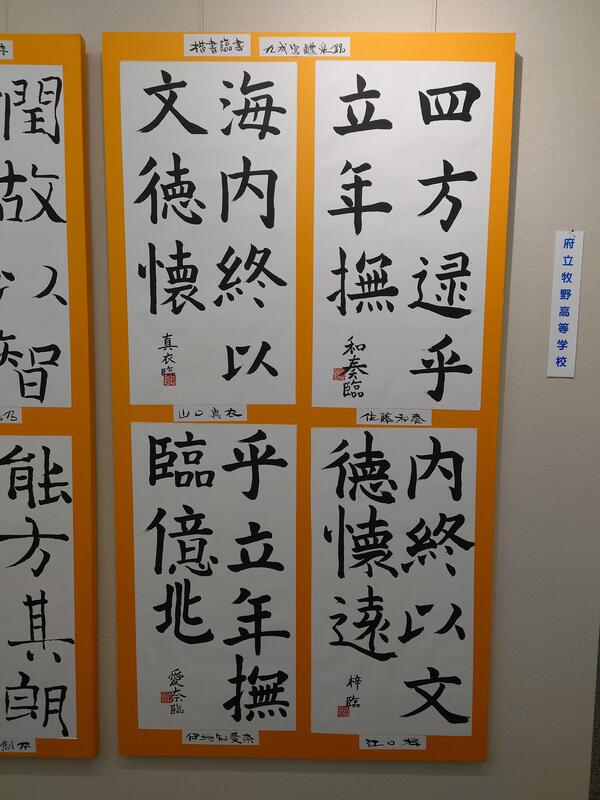 楷書臨書
九成宮醴泉銘
四方逮乎
立年撫
和奏臨
佐藤和奏
海内終以
文徳懐
真衣臨
山口真衣
内終以文
徳懐遠
梓臨
江口梓
乎立年撫
臨億兆
愛奈臨
伊地知愛奈
府立牧野高等学校
潤故以智
能方其朗